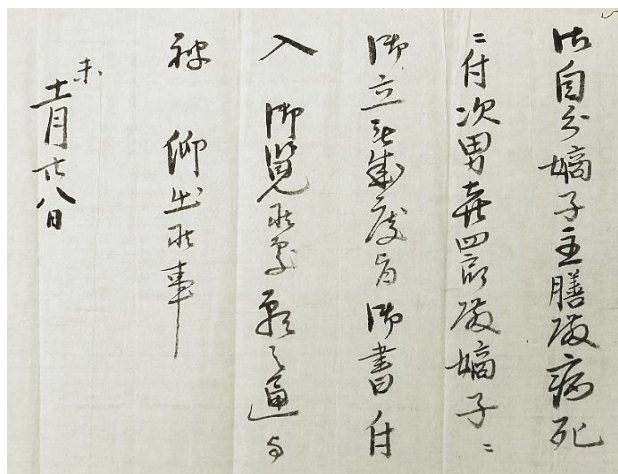 御自分嫡子主膳殿病死
ニ付次男喜四郎殿嫡子ニ
御立被成度旨御書付
入 御覧候処願之通与
被 仰出候事
未
十一月廿八日